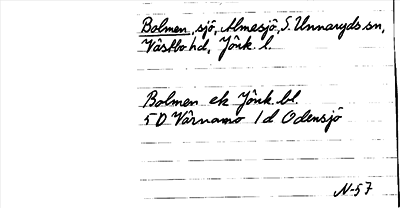 Bolmen, sjö, Almesjö, S. Unnaryds sn,
Västbo hd, Jönk. l.
Bolmen ek Jönk. bl.
5D Värnamo 1d Odensjö
N-57